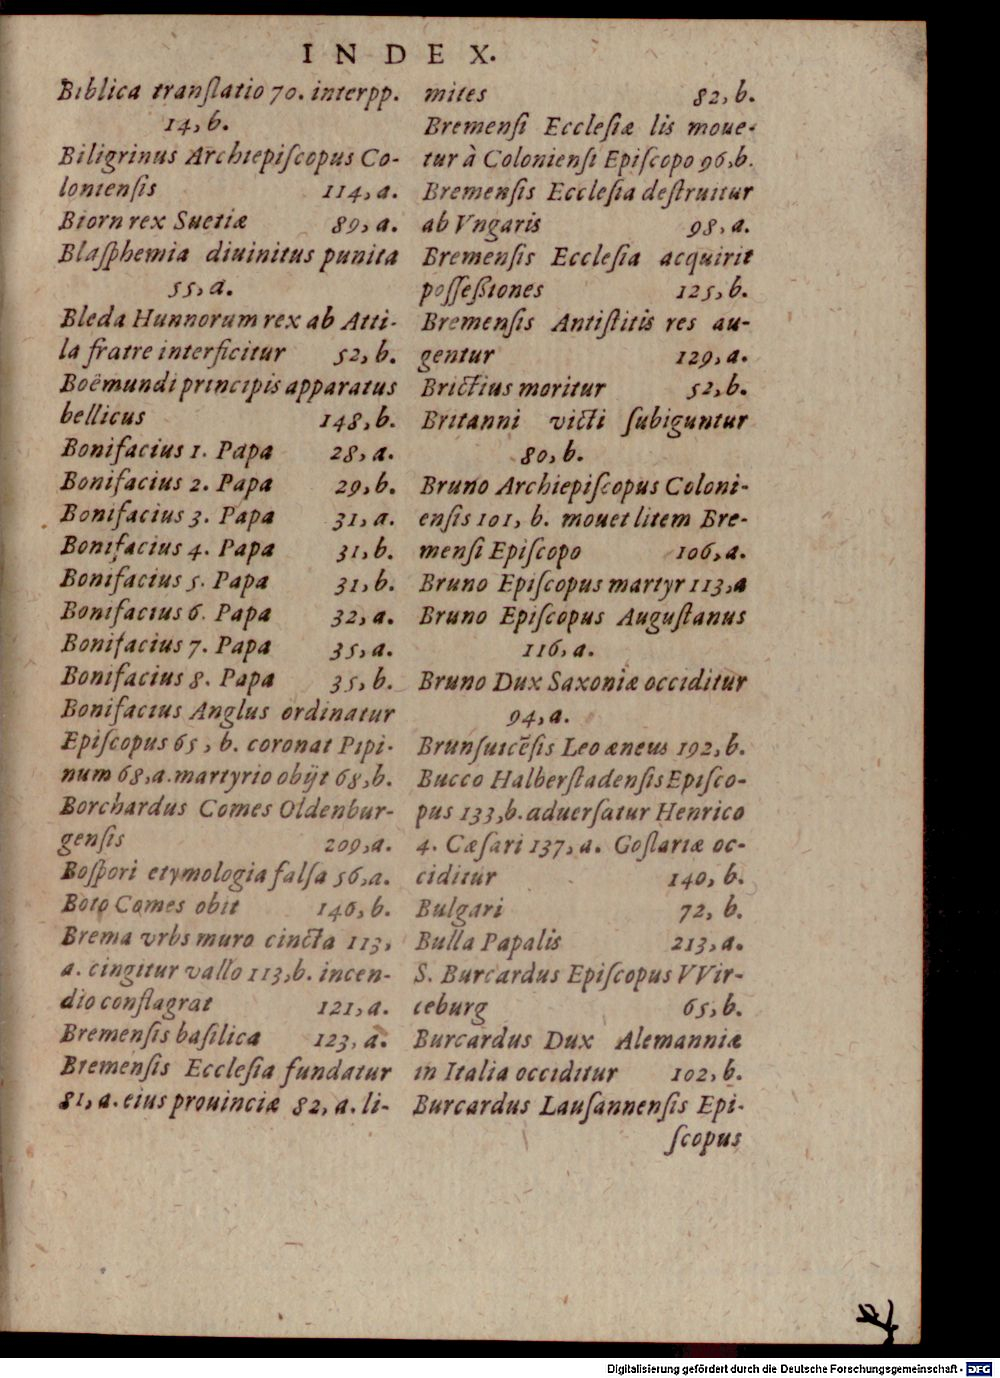 INDEX.
Biblica tranſlatio 70. interpp.
14, b.
Biligrinus Archiepiſcopus Co-
lonienſis 114, a.
Biorn rex Suetiæ 89, a.
Blaſphemia diuinitus punita
55, a.
Bleda Hunnorum rex ab Atti-
la fratre interficitur 52, b.
Boëmundi principis apparatus
bellicus 148, b.
Bonifacius 1. Papa 28, a.
Bonifacius 2. Papa 29, b.
Bonifacius 3. Papa 31, a.
Bonifacius 4. Papa 31, b.
Bonifacius 5. Papa 31, b.
Bonifacius 6. Papa 32, a.
Bonifacius 7. Papa 35, a.
Bonifacius 8. Papa 35, b.
Bonifacius Anglus ordinatur
Epiſcopus 65, b. coronat Pipi-
num 68, a. martyrio obijt 68, b.
Borchardus Comes Oldenbur-
genſis 209, a.
Boſpori etymologia falſa 56, a.
Boto Comes obit 146, b.
Brema vrbs muro cincta 113,
a. cingitur vallo 113, b. incen-
dio conflagrat 121, a.
Bremenſis baſilica 123, a.
Bremenſis Eccleſia fundatur
81, a. eius prouinciæ 82, a. li-
mites 82, b.
Bremenſi Eccleſiæ lis moue-
tur à Colonienſi Epiſcopo 96, b.
Bremenſis Eccleſia deſtruitur
ab Vngaris 98, a.
Bremenſis Eccleſia acquirit
poſſeßiones 125, b.
Bremenſis Antiſtitis res au-
gentur 129, a.
Brictius moritur 52, b.
Britanni victi ſubiguntur
80, b.
Bruno Archiepiſcopus Coloni-
enſis 101, b. mouet litem Bre-
menſi Epiſcopo 106, a.
Bruno Epiſcopus martyr 113, a
Bruno Epiſcopus Auguſtanus
116, a.
Bruno Dux Saxoniæ occiditur
94, a.
Brunſuicẽſis Leo æneus 192, b.
Bucco Halberſtadenſis Epiſco-
pus 133, b. aduerſatur Henrico
4. Cæſari 137, a. Goſlariæ oc-
ciditur 140, b.
Bulgari 72, b.
Bulla Papalis 213, a.
S. Burcardus Epiſcopus VVir-
ceburg 65, b.
Burcardus Dux Alemanniæ
in Italia occiditur 102, b.
Burcardus Lauſannenſis Epi-
ſcopus
Digitalisierung gefördert durch die Deutsche Forschungsgemeinschaft - DFG